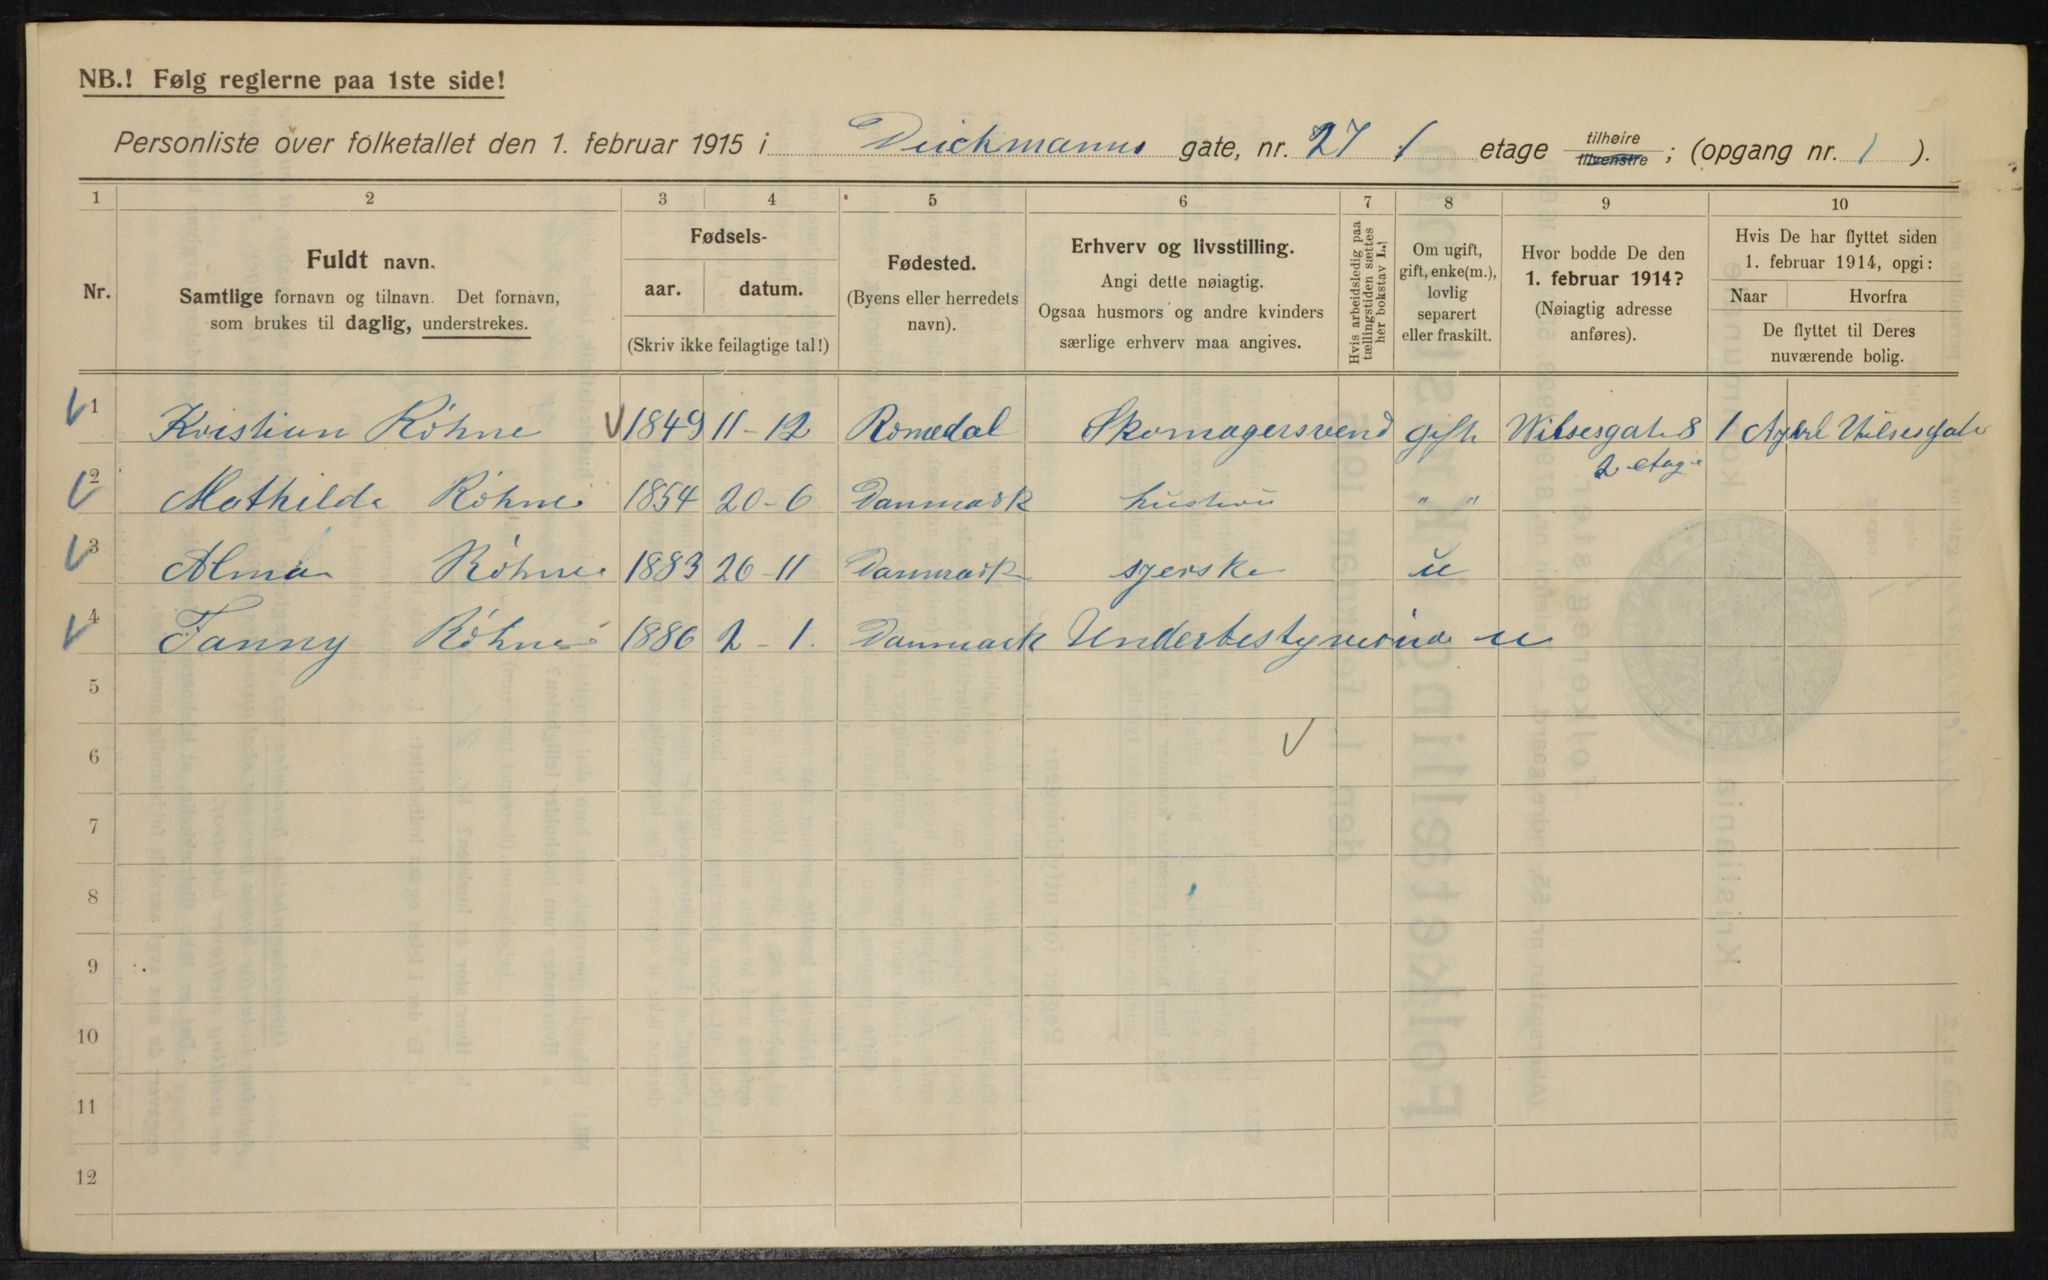 NB.! Følg reglerne paa 1ste side!
Personliste over folketallet den 1. februar 1915 i Deichmanns gate, nr. 27 1 etage tilhøire tilvenstre ; (opgang nr. 1 ).
1 2 3 4 5 6 7 8 9 10
Nr.
Fuldt navn.
Samtlige fornavn og tilnavn. Det fornavn,
som brukes til daglig, understrekes.
Fødsels-
aar. datum.
(Skriv ikke feilagtige tal!)
Fødested.
(Byens eller herredets
navn).
Erhverv og livsstilling.
Angi dette nøiagtig.
Ogsaa husmors og andre kvinders
særlige erhverv maa angives.
Hvis arbeidsledig paa
tællingstiden sættes
her bokstav L.!
Om ugift,
gift, enke(m.),
lovlig
separert
eller fraskilt.
Hvor bodde De den
1. februar 1914?
(Nøiagtig adresse
anføres).
Hvis De har flyttet siden
1. februar 1914, opgi:
Naar Hvorfra
De flyttet til Deres
nuværende bolig.
1 Kristian Röhne 1849 11-12 Romedal Skomagersvend gift Wilsesgate 8 1 April Vilsesgate
2 etage
2 Mathilde Röhne 1854 20-6 Danmark hustru " "
3 Alma Röhne 1883 26-11 Danmark syerske u
4 Fanny Röhne 1886 2-1. Danmark Underbestyrerinde u
5
6
7
8
9
10
11
12